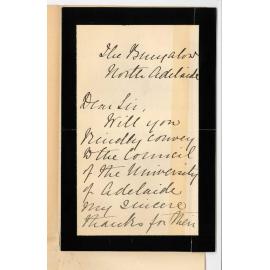 The Bungalow
North Adelaide
Dear Sir,
Will you
Kindly convey
to the Council
of the University
of Adelaide
my sincere
thanks for their